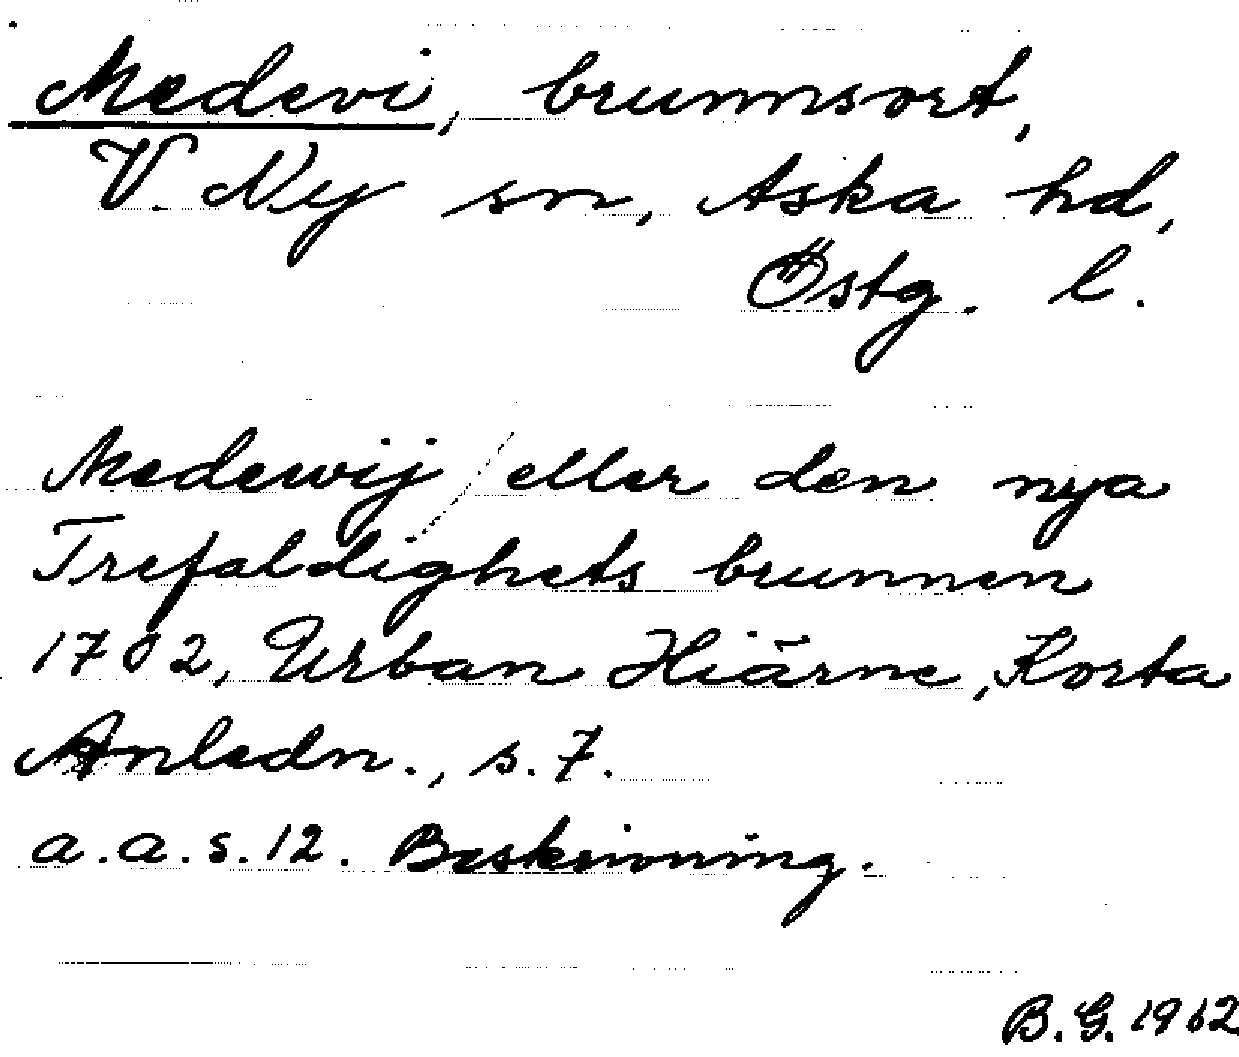 Medevi, brunnsort,
V. Ny sn, Aska hd,
Östg. l.
Medewij / eller den nya
Trefaldighets brunnen
1702, Urban Hiärne, Korta
Anledn., s. 7.
a.a.s.12. Beskrivning.
B.G. 1962